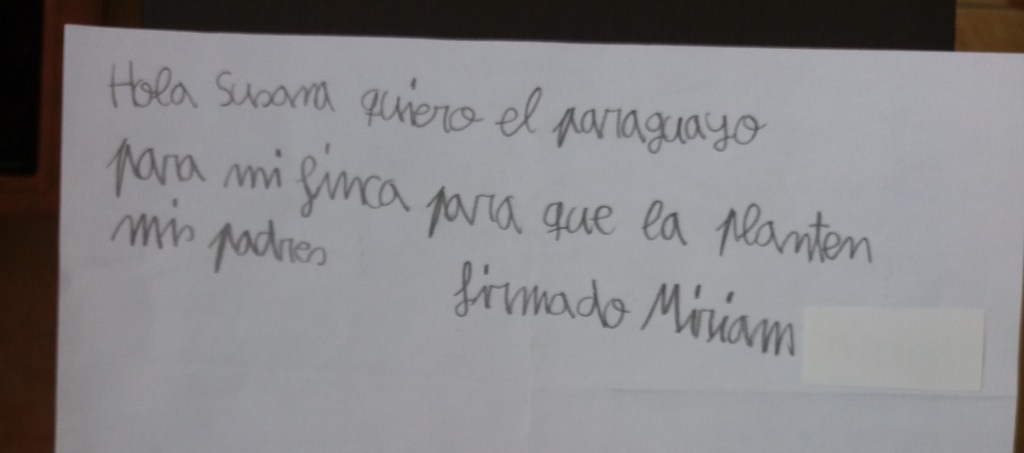 Hola Susana quiero el paraguayo
para mi finca para que la planten
mis padres
firmado Miriam